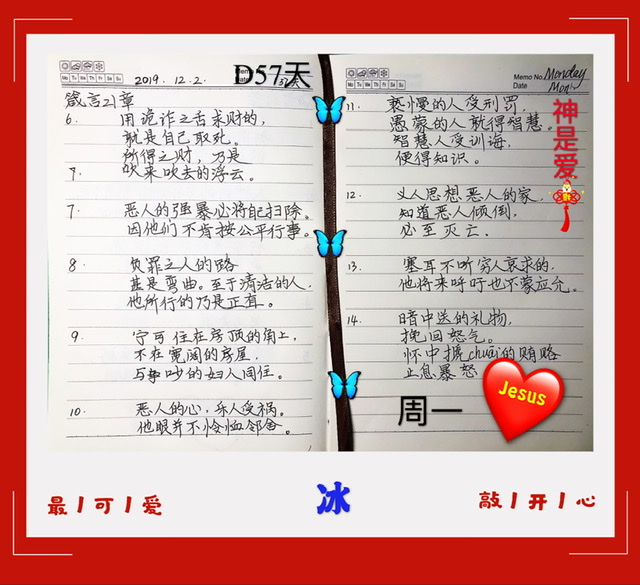 Mo Tu We Th Fr Sa Su
2019. 12. 2.
D57天
箴言21章
6. 用诡诈之舌求财的,
就是自己取死。
所得之财,乃是
吹来吹去的浮云。
7. 恶人的强暴必将自己扫除。
因他们不肯按公平行事。
8. 负罪之人的路
甚是弯曲。至于清洁的人,
他所行的乃是正直。
9. 宁可住在房顶的角上,
不在宽阔的房屋,
与争吵的妇人同住。
10. 恶人的心,乐人受祸。
他眼并不怜恤邻舍。
Mo Tu We Th Fr Sa Su
Memo No. Monday
Date Mon
11. 亵慢的人受刑罚,
愚蒙的人就得智慧。
智慧人受训诲,
便得知识。
12. 义人思想恶人的家,
知道恶人倾倒,
必至灭亡.
13. 塞耳不听穷人哀求的,
他将来呼吁也不蒙应允。
14. 暗中送的礼物,
挽回怒气。
怀中搋chuāi的贿赂
止息暴怒
神是爱
Jesus
周一
最/可/爱
冰
敲/开/心